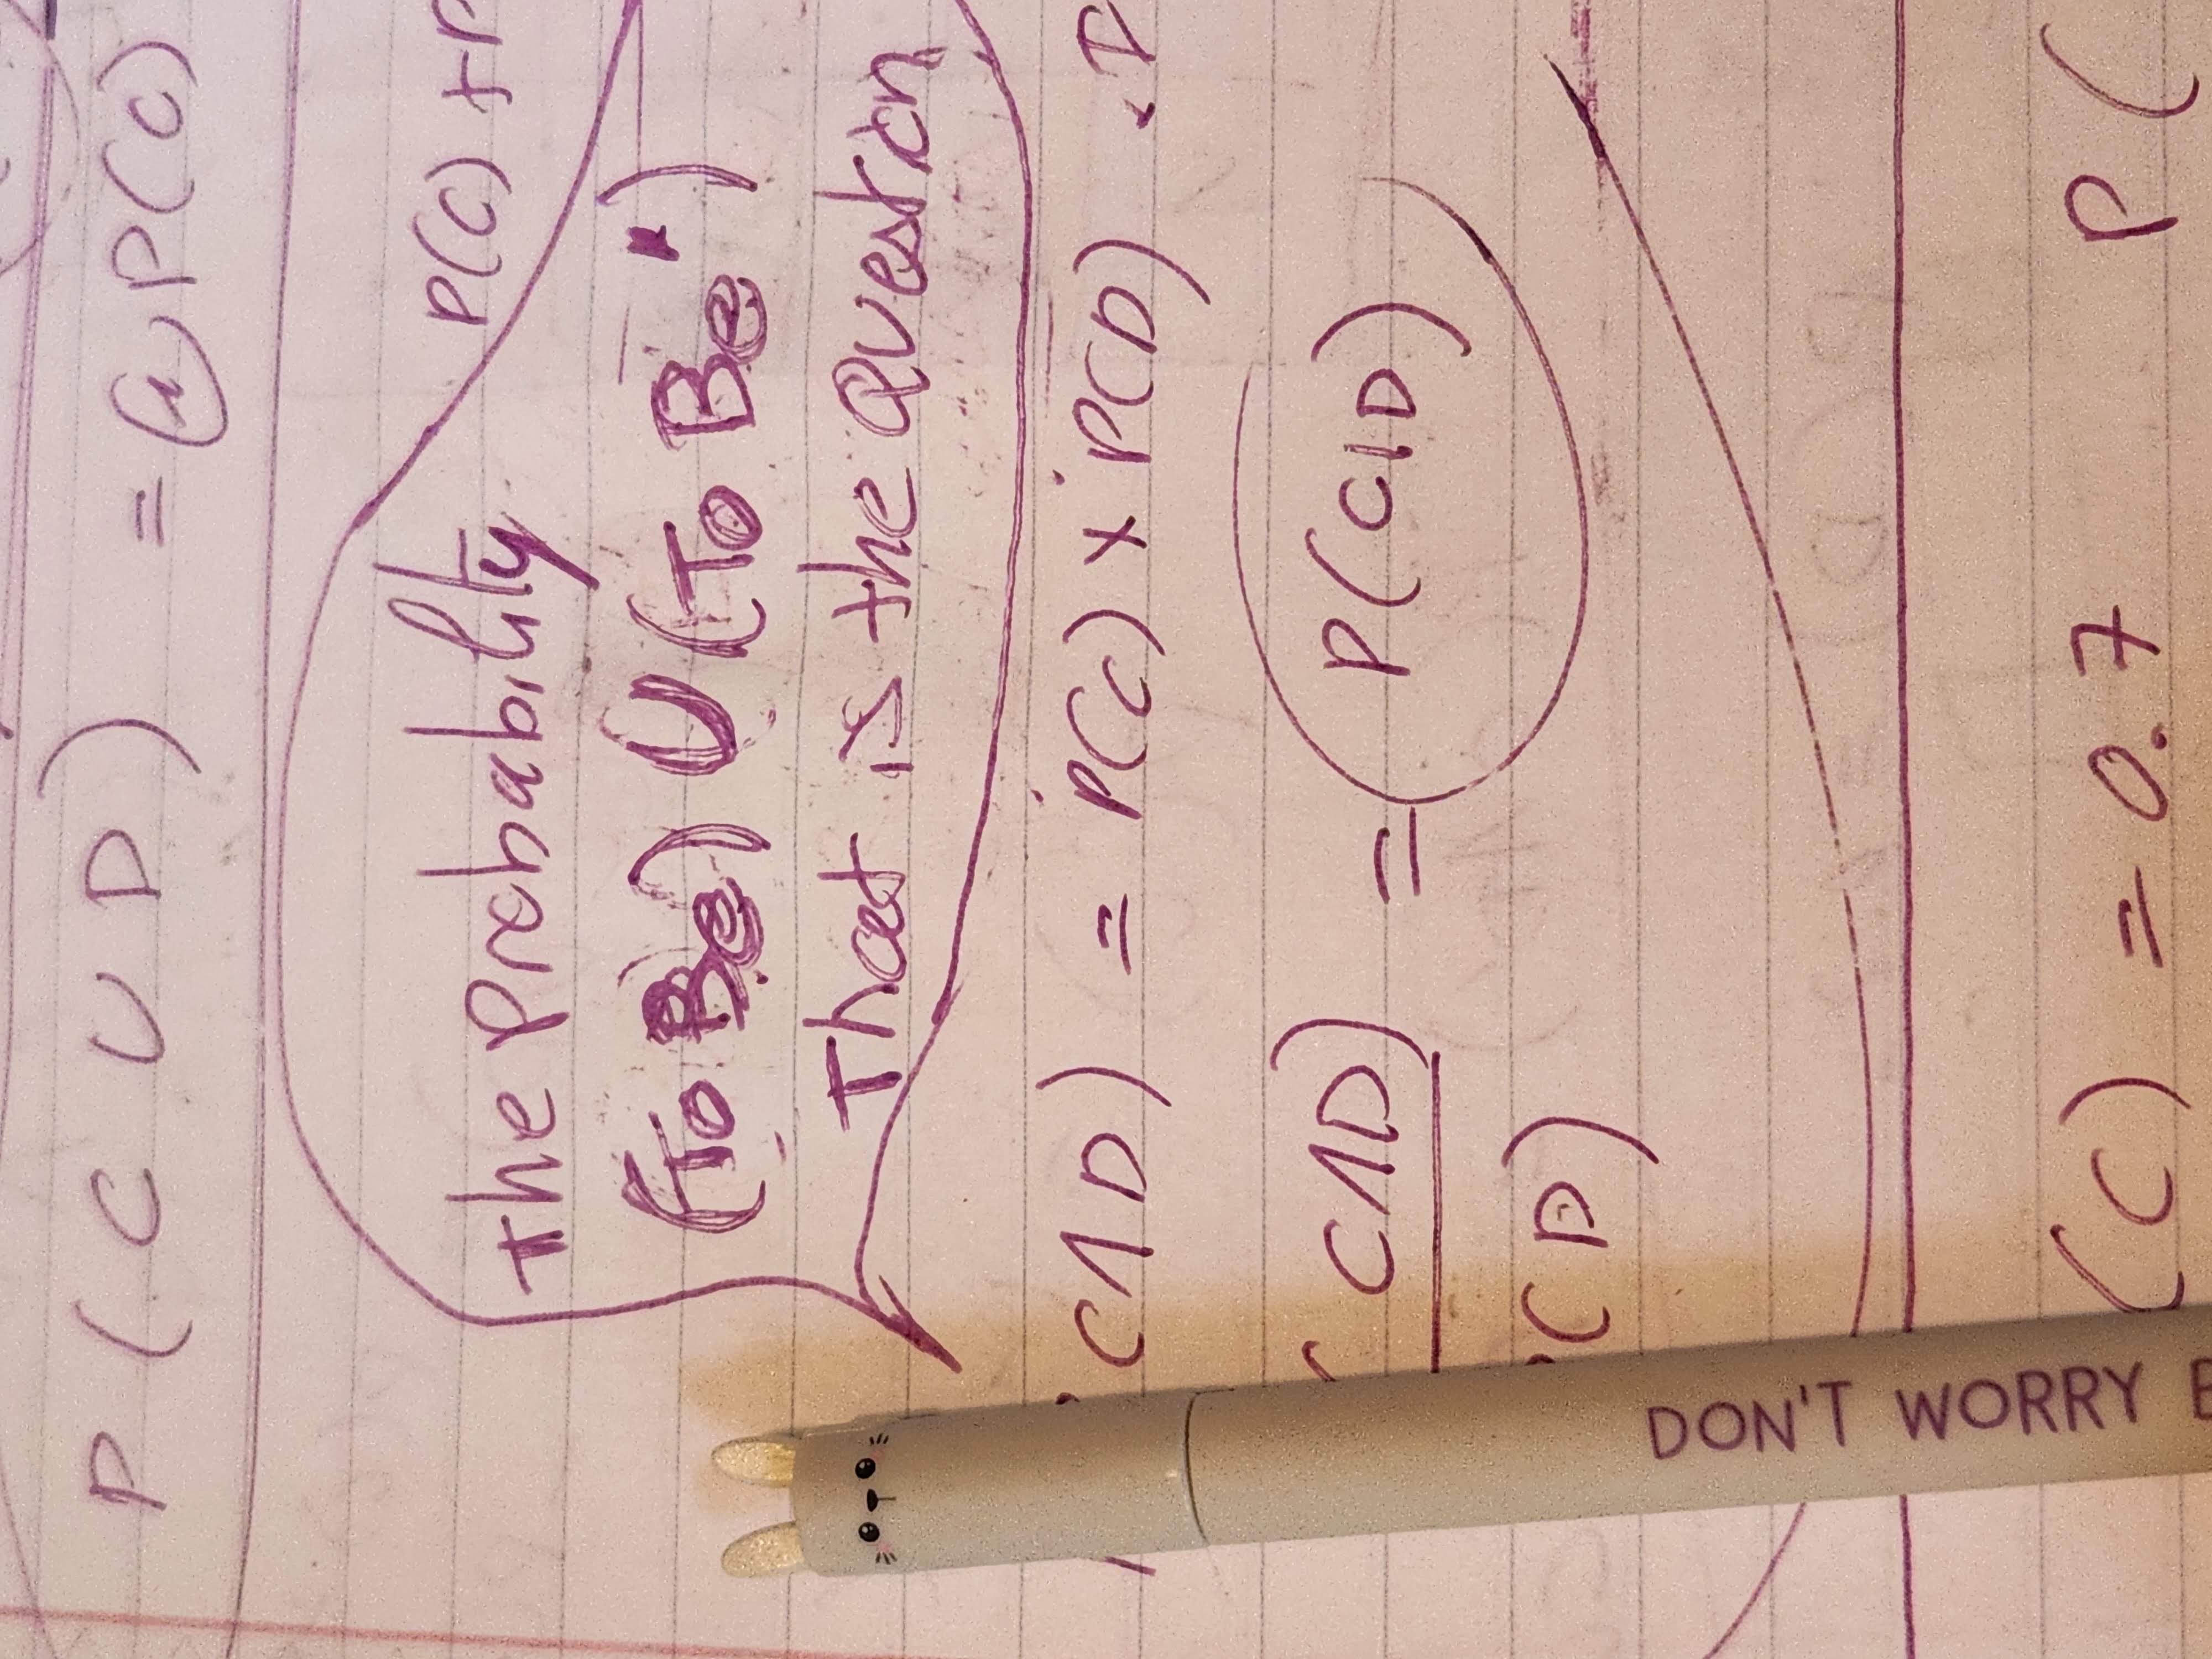 P ( C U D ) = P(C)
P(C) + P
The Probability
(To Be) U (To Be')
That is the Question
(C∩D) = P(C) x P(D)
( C∩D) = P(C|D)
(D)
(C) = 0.7 P (
DON'T WORRY B